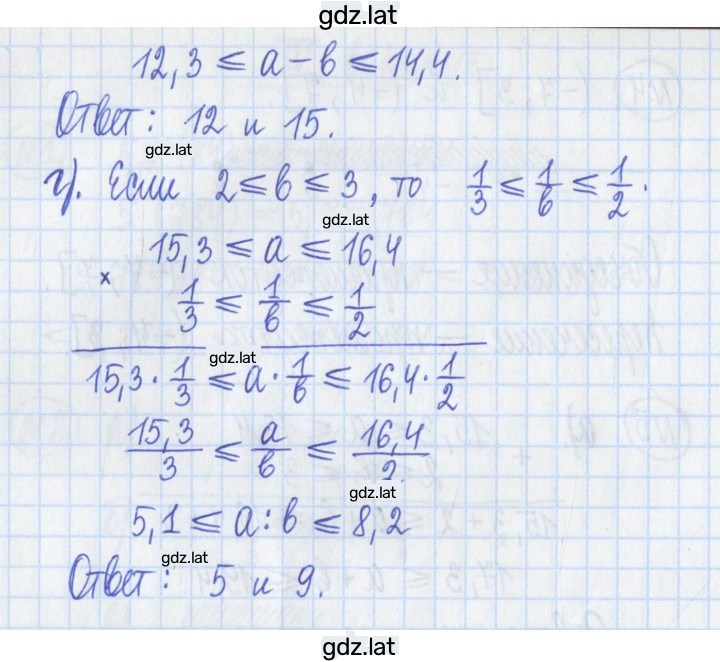 gdz.lat
12,3 ≤ a − b ≤ 14,4.
Ответ: 12 и 15.
gdz.lat
г). Если 2 ≤ b ≤ 3, то 1/3 ≤ 1/b ≤ 1/2.
gdz.lat
15,3 ≤ a ≤ 16,4
×
1/3 ≤ 1/b ≤ 1/2
gdz.lat
15,3 · 1/3 ≤ a · 1/b ≤ 16,4 · 1/2
15,3/3 ≤ a/b ≤ 16,4/2
gdz.lat
5,1 ≤ a : b ≤ 8,2
gdz.lat
Ответ: 5 и 9.
gdz.lat